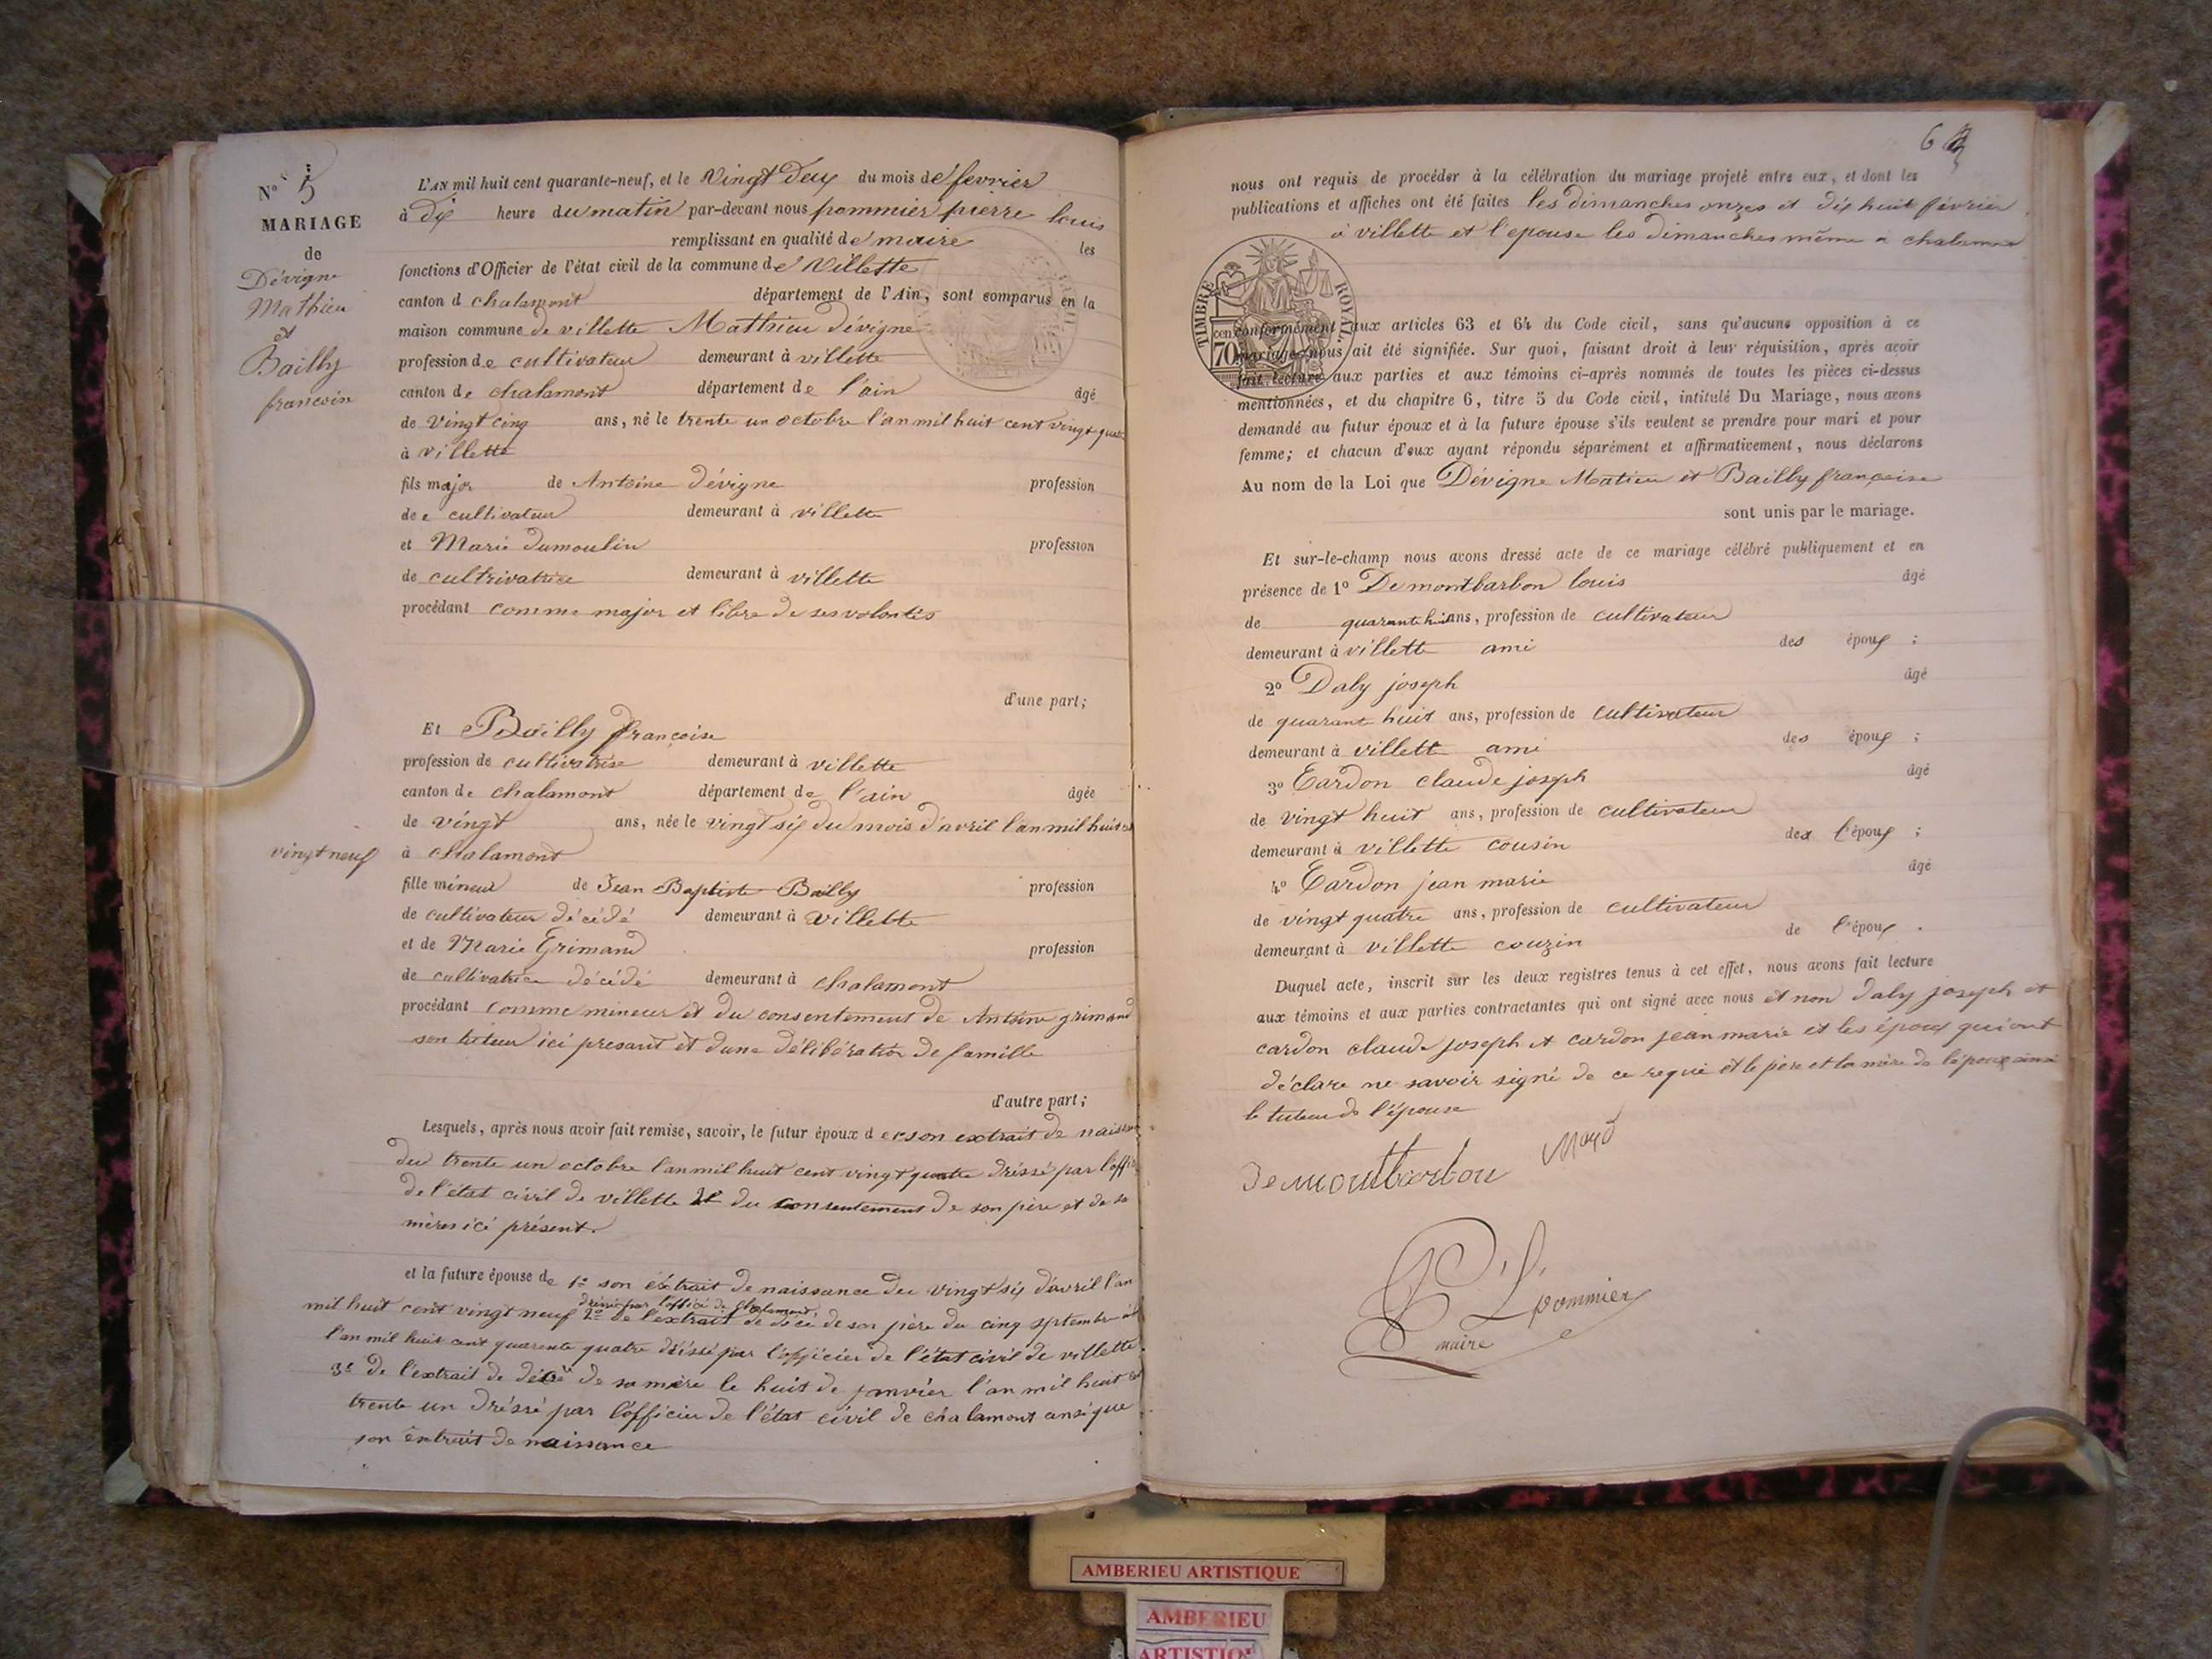 N° 5
MARIAGE
de
Dévigne
Mathieu
et
Bailly
francoise
L'AN mil huit cent quarante-neuf, et le vingt deux du mois de fevrier
à dix heure du matin par-devant nous pommier pierre louis
remplissant en qualité de maire les
fonctions d'Officier de l'état civil de la commune de Villette
canton d chalamont département de l'Ain, sont comparus en la
maison commune de villette Mathieu dévigne
profession de cultivateur demeurant à villette
canton de chalamont département de l'ain âgé
de vingt cinq ans, né le trente un octobre l'an mil huit cent vingt quatre
à villette
fils major de Antoine dévigne profession
de cultivateur demeurant à villette
et Marie dumoulin profession
de cultrivatrice demeurant à villette
procédant comme major et libre de ses volontés
d'une part;
Et Bailly françoise
profession de cultivatrise demeurant à villette
canton de chalamont département de l'ain âgée
de vingt ans, née le vingt six du mois d'avril l'an mil huit cent
vingt neuf à chalamont
fille mineur de Jean Baptiste Bailly profession
de cultivateur décédé demeurant à villette
et de Marie Grimand profession
de cultivatrice décédé demeurant à chalamont
procédant comme mineur et du consentement de Antoine grimand
son tuteur ici presant et dune délibération de famille
d'autre part;
Lesquels, après nous avoir fait remise, savoir, le futur époux de son extrait de naissance
du trente un octobre l'an mil huit cent vingt quatre dréssé par l'officier
de l'état civil de villette 2° du consentement de son père et de sa
mères ici présent.
et la future épouse de 1° son extrait de naissance du vingt six d'avril l'an
dréssé par l'office de chalamont
mil huit cent vingt neuf 2° de l'extrait de déce de son père du cinq septembre
l'an mil huit cent quarente quatre dréssé par l'officier de l'état civil de villette
3° de l'extrait de décé de sa mère le huit de janvier l'an mil huit cent
trente un dréssé par l'officier de l'état civil de chalamont ansi que
son extrait de naissance
6
nous ont requis de procéder à la célébration du mariage projeté entre eux, et dont les
publications et affiches ont été faites les dimanches onzes et dix huit février
à villette et l'epouse les dimanches même a chalamont
TIMBRE ROYAL
cen 70
conformément aux articles 63 et 64 du Code civil, sans qu'aucune opposition à ce
mariage nous ait été signifiée. Sur quoi, faisant droit à leur réquisition, après avoir
fait lecture aux parties et aux témoins ci-après nommés de toutes les pièces ci-dessus
mentionnées, et du chapitre 6, titre 5 du Code civil, intitulé Du Mariage, nous avons
demandé au futur époux et à la future épouse s'ils veulent se prendre pour mari et pour
femme; et chacun d'eux ayant répondu séparément et affirmativement, nous déclarons
Au nom de la Loi que Dévigne Matieu et Bailly françoise
sont unis par le mariage.
Et sur-le-champ nous avons dressé acte de ce mariage célébré publiquement et en
présence de 1° Demontbarbon louis âgé
de quarante huit ans, profession de cultivateur
demeurant à villette ami des époux ;
2° Daby joseph âgé
de quarant huit ans, profession de cultivateur
demeurant à villett ami des époux ;
3° Cardon claude joseph âgé
de vingt huit ans, profession de cultivateur
demeurant à villette cousin de l'époux ;
4° Cardon jean marie âgé
de vingt quatre ans, profession de cultivateur
demeurant à villette couzin de l'époux .
Duquel acte, inscrit sur les deux registres tenus à cet effet, nous avons fait lecture
aux témoins et aux parties contractantes qui ont signé avec nous et non daby joseph et
cardon claude joseph et cardon jean marie et les époux qui ont
déclare ne savoir signé de ce requi et le père et la mère de l'époux
le tuteur de l'épouse
Demontbarbon
P. L. pommier
maire
AMBERIEU ARTISTIQUE
AMBERIEU
ARTISTIQUE